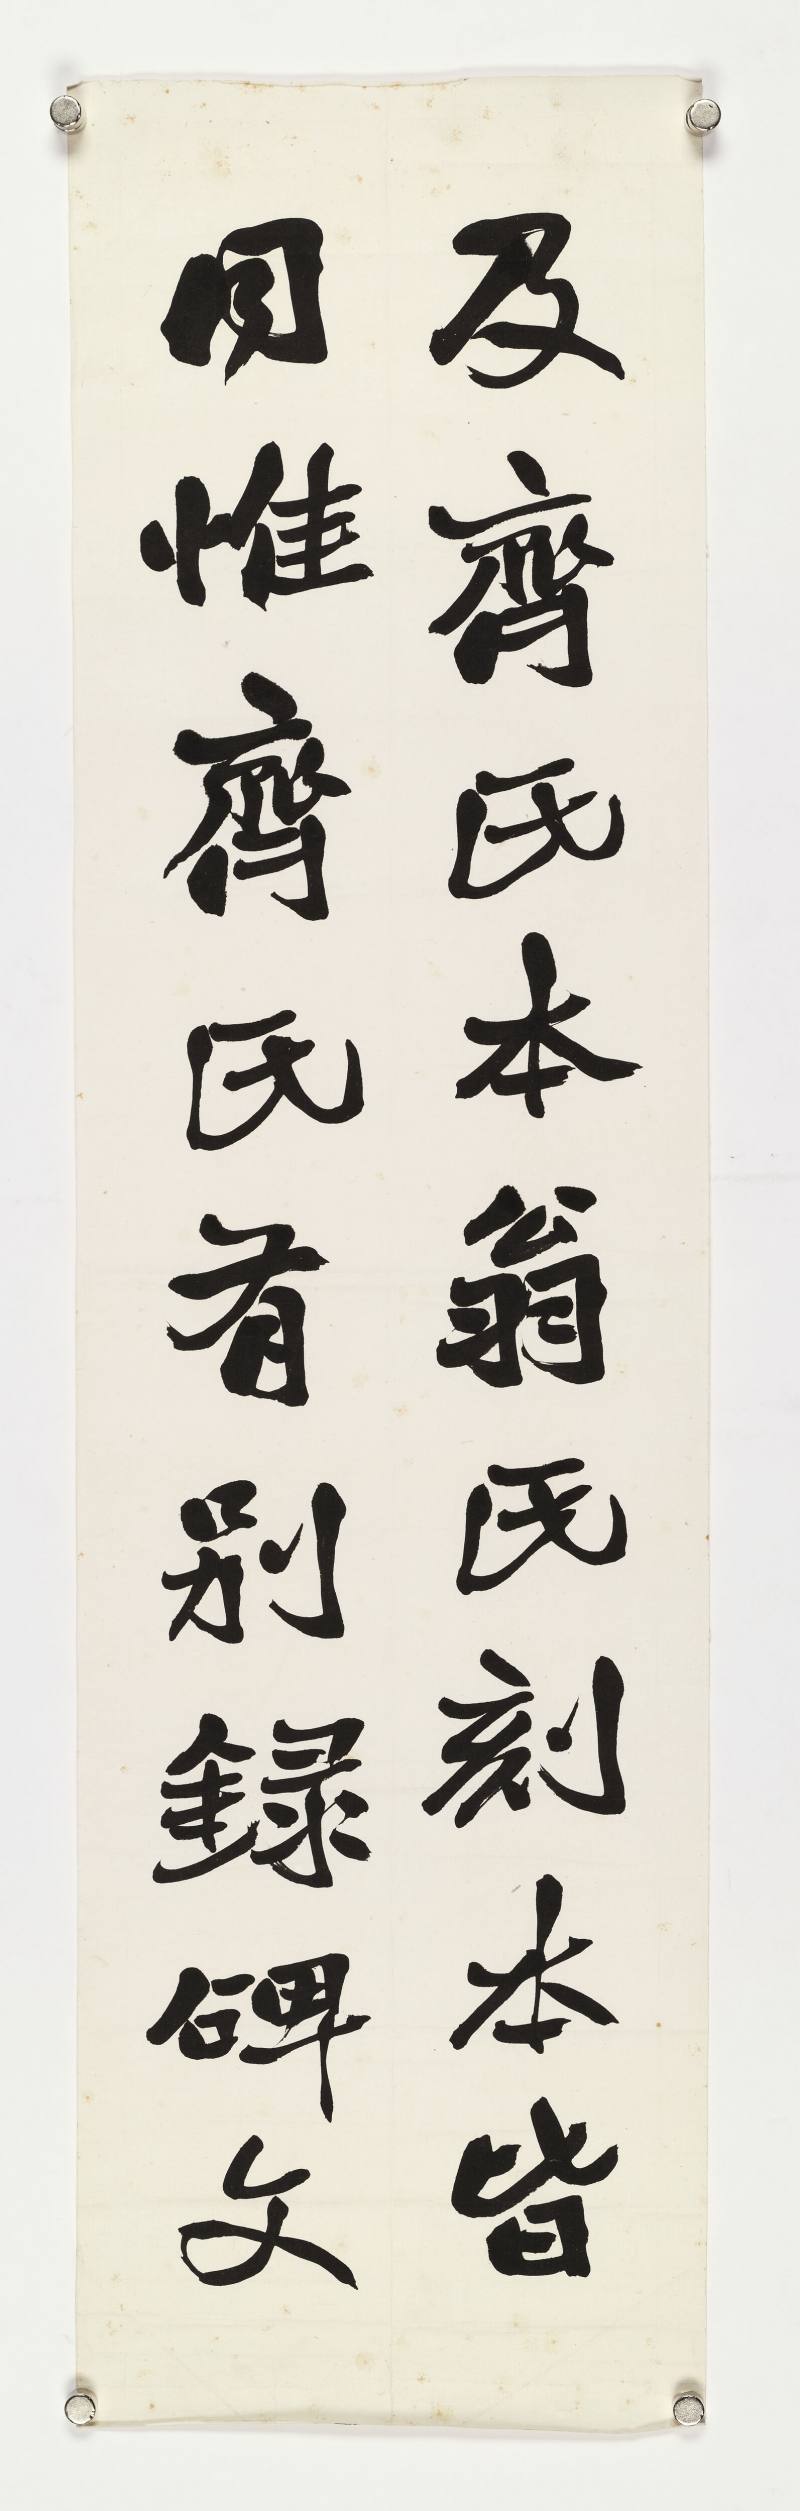 及齊氏本翁氏刻本皆
同惟齊氏有別錄碑文